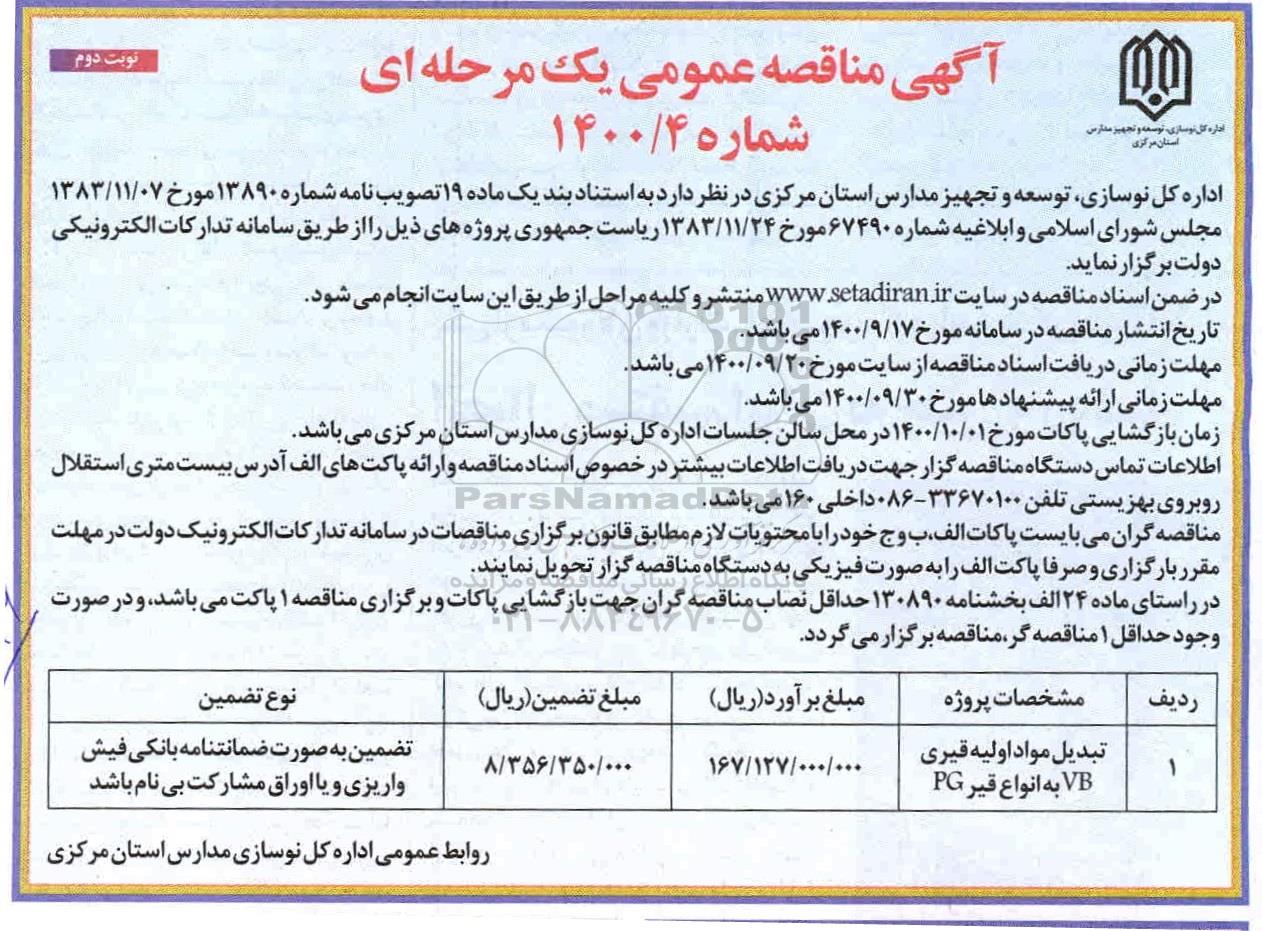 نوبت دوم
آگهی مناقصه عمومی یک مرحله ای
شماره ۱۴۰۰/۴
اداره کل نوسازی، توسعه و تجهیز مدارس
استان مرکزی
اداره کل نوسازی، توسعه و تجهیز مدارس استان مرکزی در نظر دارد به استناد بند یک ماده ۱۹ تصویب نامه شماره ۱۳۸۹۰ مورخ ۱۳۸۳/۱۱/۰۷
مجلس شورای اسلامی و ابلاغیه شماره ۶۷۴۹۰ مورخ ۱۳۸۳/۱۱/۲۴ ریاست جمهوری پروژه های ذیل را از طریق سامانه تدارکات الکترونیکی
دولت برگزار نماید.
در ضمن اسناد مناقصه در سایت www.setadiran.ir منتشر و کلیه مراحل از طریق این سایت انجام می شود.
تاریخ انتشار مناقصه در سامانه مورخ ۱۴۰۰/۹/۱۷ می باشد.
مهلت زمانی دریافت اسناد مناقصه از سایت مورخ ۱۴۰۰/۰۹/۲۰ می باشد.
مهلت زمانی ارائه پیشنهادها مورخ ۱۴۰۰/۰۹/۳۰ می باشد.
زمان بازگشایی پاکات مورخ ۱۴۰۰/۱۰/۰۱ در محل سالن جلسات اداره کل نوسازی مدارس استان مرکزی می باشد.
اطلاعات تماس دستگاه مناقصه گزار جهت دریافت اطلاعات بیشتر در خصوص اسناد مناقصه و ارائه پاکت های الف آدرس بیست متری استقلال
روبروی بهزیستی تلفن ۳۳۶۷۰۱۰۰-۰۸۶ داخلی ۱۶۰ می باشد.
ParsNamadData
مناقصه گران می بایست پاکات الف، ب و ج خود را با محتویات لازم مطابق قانون برگزاری مناقصات در سامانه تدارکات الکترونیک دولت در مهلت
مقرر بارگزاری و صرفا پاکت الف را به صورت فیزیکی به دستگاه مناقصه گزار تحویل نمایند.
پایگاه اطلاع رسانی مناقصه و مزایده
در راستای ماده ۲۴ الف بخشنامه ۱۳۰۸۹۰ حداقل نصاب مناقصه گران جهت بازگشایی پاکات و برگزاری مناقصه ۱ پاکت می باشد، و در صورت
۰۲۱-۸۸۳۴۹۶۷۰-۵
وجود حداقل ۱ مناقصه گر، مناقصه برگزار می گردد.
ردیف مشخصات پروژه مبلغ برآورد(ریال) مبلغ تضمین(ریال) نوع تضمین
۱ تبدیل مواد اولیه قیری ۱۶۷/۱۲۷/۰۰۰/۰۰۰ ۸/۳۵۶/۳۵۰/۰۰۰ تضمین به صورت ضمانتنامه بانکی فیش
VB به انواع قیر PG واریزی و یا اوراق مشارکت بی نام باشد
روابط عمومی اداره کل نوسازی مدارس استان مرکزی